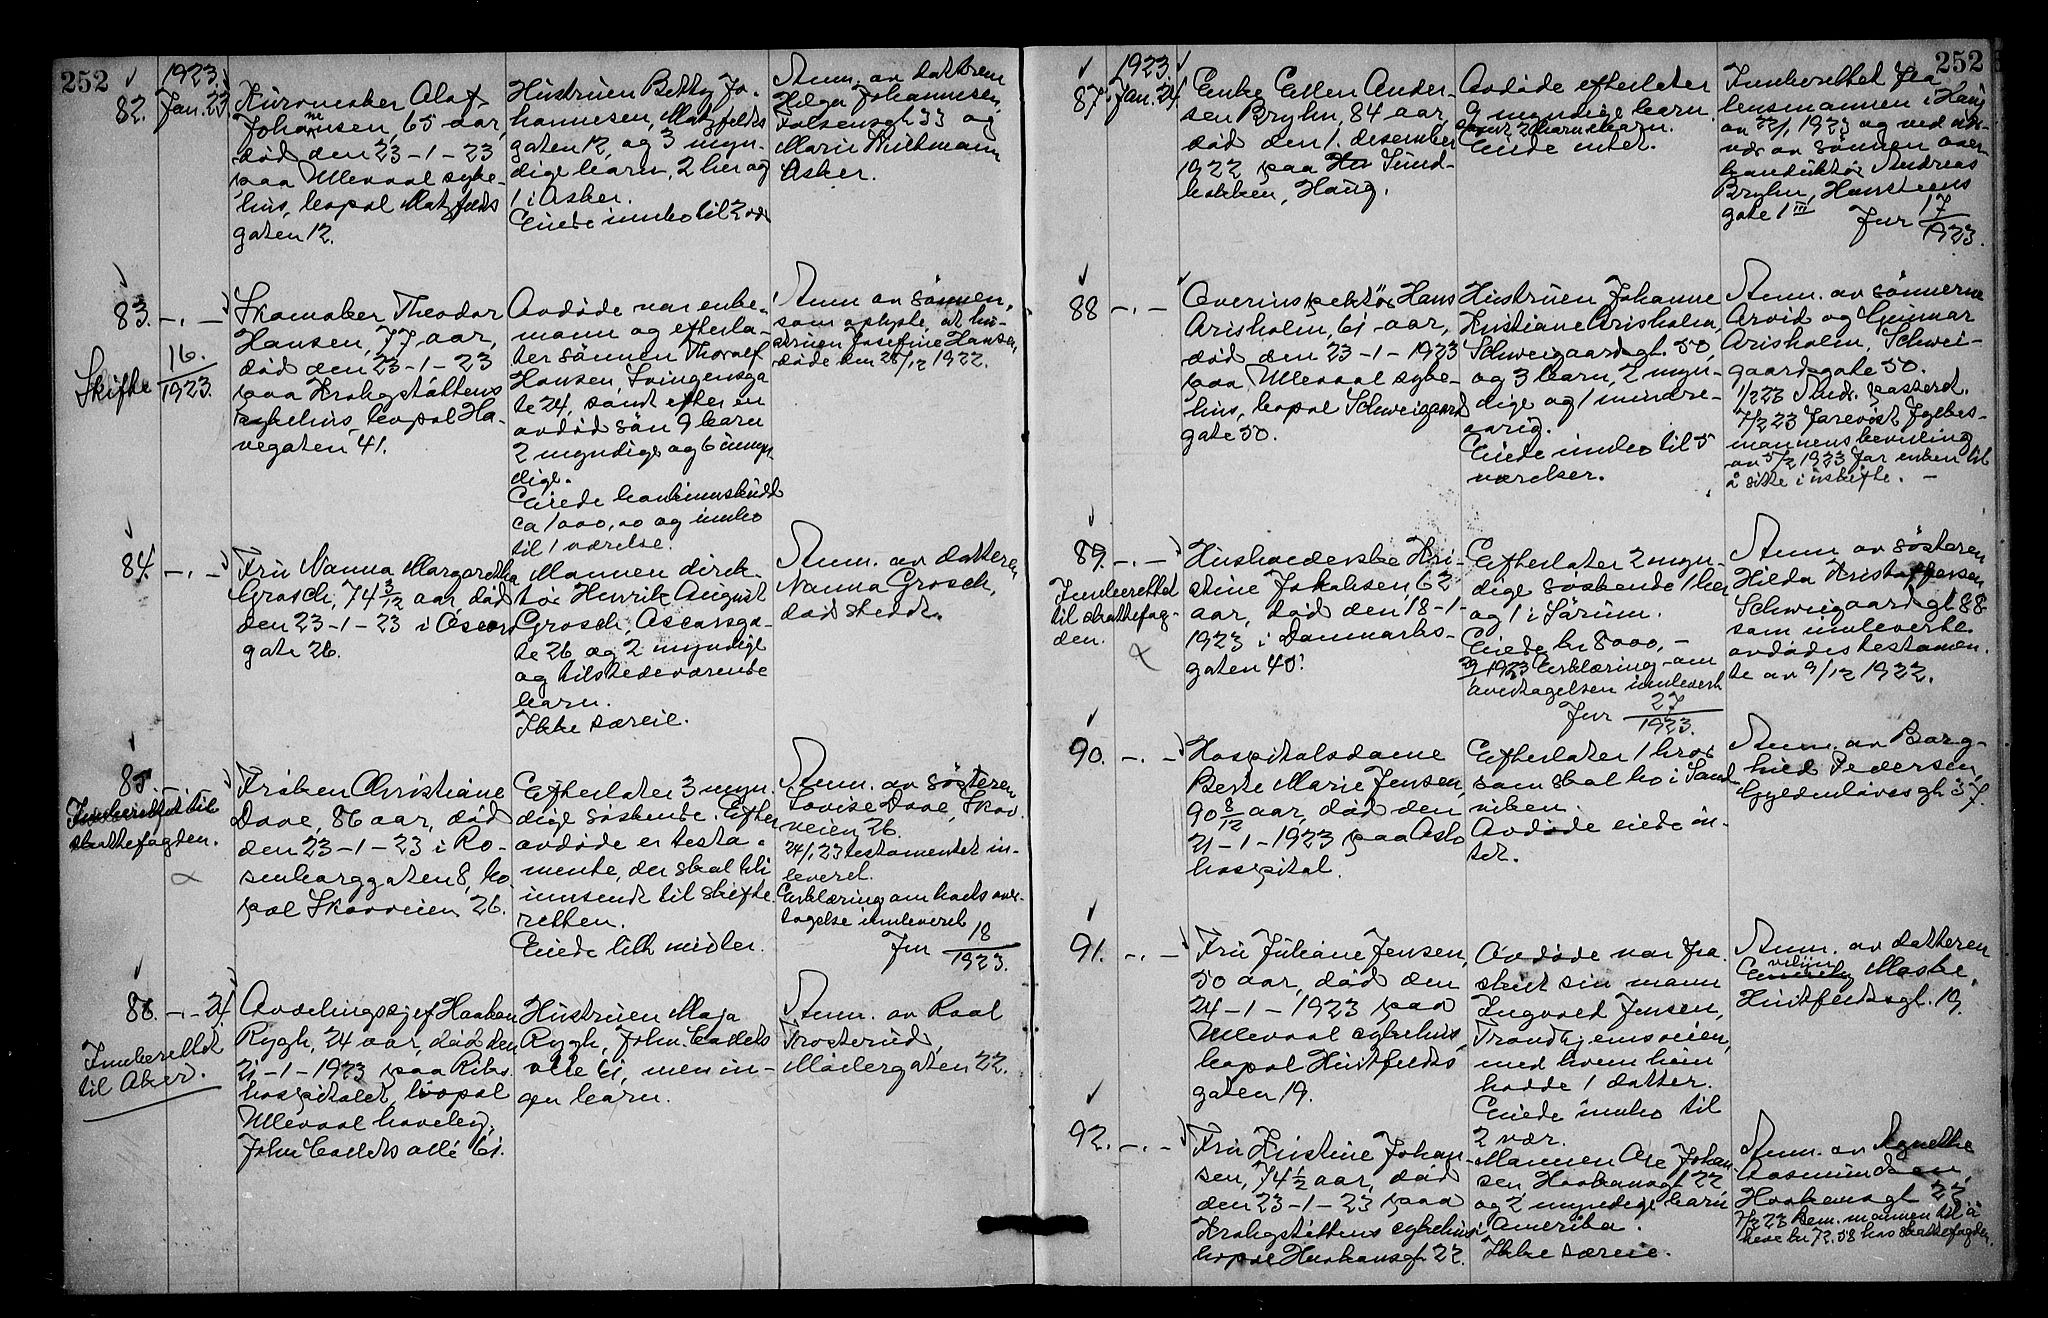 252
1923.
82. Jan. 23.
Kurvmaker Olaf
Johannesen, 65 aar,
død den 23-1-23
paa Ullevaal syke-
hus, bopæl Matzfeldts
gaten 12.
Hustruen Betty Jo-
hannesen, Matzfeldts
gaten 12, og 3 myn-
dige barn, 2 her og
1 i Asker.
Eiede innbo til 2 vær
Anm. av datteren
Helga Johannesen,
Falsensgt 33 og
Marie
Asker.
83. -.-
Skifte 16./1923.
Skomaker Theodor
Hansen, 77 aar,
død den 23-1-23
paa Krohgstøttens
sykehus, bopæl Ha-
vegaten 41.
Avdøde var enke-
mann og efterla-
ter sønnen Thoralf
Hansen, Svingensga
te 24, samt efter en
avdød søn 9 barn
2 myndige og 6 umyn
dige.
Eiede bankinnskudd
ca 1000,00 og innbo
til 1 værelse.
Anm av sønnen,
som oplyste, at hu-
struen Josefine Hansen
døde den 28/12 1922.
84. -.-
Fru Nanna Margaretha
Grosch, 74 3/12 aar, død
den 23-1-23 i Oscars
gate 26.
Mannen direk-
tør Henrik August
Grosch, Oscarsga-
te 26 og 2 myndige
og tilstedeværende
barn.
Ikke særeie.
Anm. av datteren
Nanna Grosch,
dødstedet.
85.
Innberettet til
skattefogden.
Frøken Christiane
Dove, 86 aar, død
den 23-1-23 i Ro-
senborggaten 8, bo
pæl Skovveien 26.
Efterlater 3 myn
dige søskende. Efter
avdøde er testa-
mente, der skal bli
innsendt til skifte
retten.
Eiede litt midler.
Anm. av søsteren
Lovise Dove, Skov
veien 26.
24/1 23 testamentet in-
leveret.
Erklæring om boets over-
tagelse innleveret
Jnr 18/1923.
86. -.- 24.
Innberettet
til Aker.
Avdelingssjef Haakon
Rygh, 24 aar, død den
21-1-1923 paa Riks
hospitalet, bopæl
Ullevaal haveby,
John Colletts allé 61.
Hustruen Maja
Rygh, John Colletts
alle 61, men in-
gen barn.
Anm. av Roal
Trosterud,
Møllergaten 22.
252
1923
87. Jan. 24
Enke Ellen Ander-
sen Bryhn, 84 aar,
død den 1. desember
1922 paa Sund-
bakken, Haug.
Avdøde efterlater
9 myndige barn
samt 2 barnebarn.
Eiede intet.
Innberettet fra
lensmannen i Haug
av 22/1 1923 og ved
av sønnen over-
konduktør Andreas
Bryhn, Hansteens
gate 1 III
Jnr 17/1923.
88 -.-
Overinspektør Hans
Arisholm, 61 aar,
død den 23-1-1923
paa Ullevaal syke-
hus, bopæl Schweigaard
gate 50.
Hustruen Johanne
Kristiane Arisholm,
Schweigaardsgt. 50,
og 3 barn, 2 myn-
dige og 1 mindre-
aarig.
Eiede innbo til 5
værelser.
Anm. av sønnerne
Arvid og Gunnar
Arisholm, Schwei-
gaardsgate 50.
passeret.
7/2 23 forevist fylkes-
mannens bevilling
av 5/2 1923 for enken til
å sitte i uskifte. -
89. -.-
Innberettet
til skattefog-
den.
Husholderske Kri-
stine Jakobsen, 62
aar, død den 18-1-
1923 i Danmarks-
gaten 40.
Efterlater 2 myn-
dige søskende 1 her
og 1 i Sørum.
Eiede kr 8000,-
1923 Erklæring om
overtagelsen innlevert
Jnr 27/1923.
Anm. av søsteren
Hilda Kristoffersen
Schweigaardsgt 88
som innleverte
avdødes testamen-
te av 9/12 1922.
90. -.-
Hospitalsdame
Berte Marie Jensen,
90 8/12 aar, død den
21-1-1923 paa Oslo
hospital.
Efterlater 1 bror
som skal bo i Sand
viken.
Avdøde eiede in-
tet.
Anm. av Borg-
hild Pedersen,
Gyldenløves gt 37.
91. -.-
Fru Juliane Jensen,
50 aar, død den
24-1-1923 paa
Ullevaal sykehus,
bopæl Huitfeldts
gaten 19.
Avdøde var fra
skilt sin mann
Ingvald Jensen,
Trondhjemsveien,
med hvem hun
hadde 1 datter.
Eiede innbo til
2 vær.
Anm. av datteren
Moske,
Huitfeldtsgt. 19.
92. -.-
Fru Kristine Johan-
sen, 74 1/2 aar, død
den 23-1-23 paa
Krohgstøttens sykehus
bopæl Haakonsgt 22.
Mannen Ole Johan
sen Haakonsgt 22
og 2 myndige barn
i Amerika.
Ikke særeie.
Anm. av Agnethe
Aasmundsen,
Haakonsgt 22
7/2 23 Bem. mannen til å
heve kr 72.58 hos skattefogden.